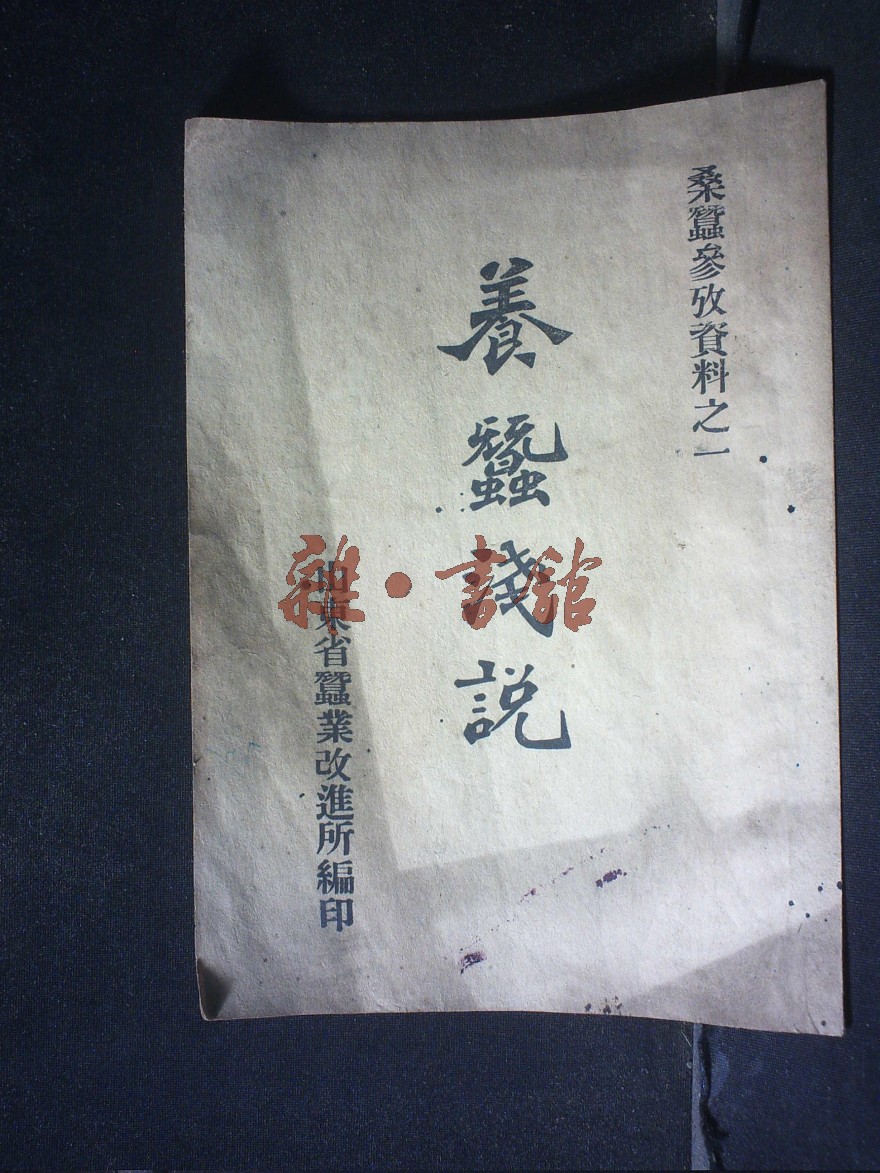 桑蠶參攷資料之一
養蠶淺説
山東省蠶業改進所編印
雜·書舘